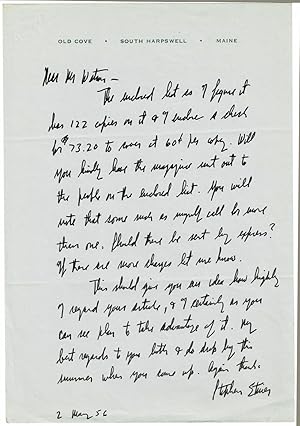 OLD COVE • SOUTH HARPSWELL • MAINE
Dear Mr Watson –
The enclosed list as I figure it
has 122 copies on it & I enclose a check
for $73.20 to cover it 60¢ per copy. Will
you kindly have the magazine sent out to
the people on the enclosed list. You will
note that some such as myself call for more
than one. Should these be sent by express?
If there are more charges let me know.
This should give you an idea how highly
I regard your article, & I certainly as you
can see plan to take advantage of it. My
best regards to you both & do drop by this
summer when you come up. Again thanks.
Stephen Etnier
2 May 56